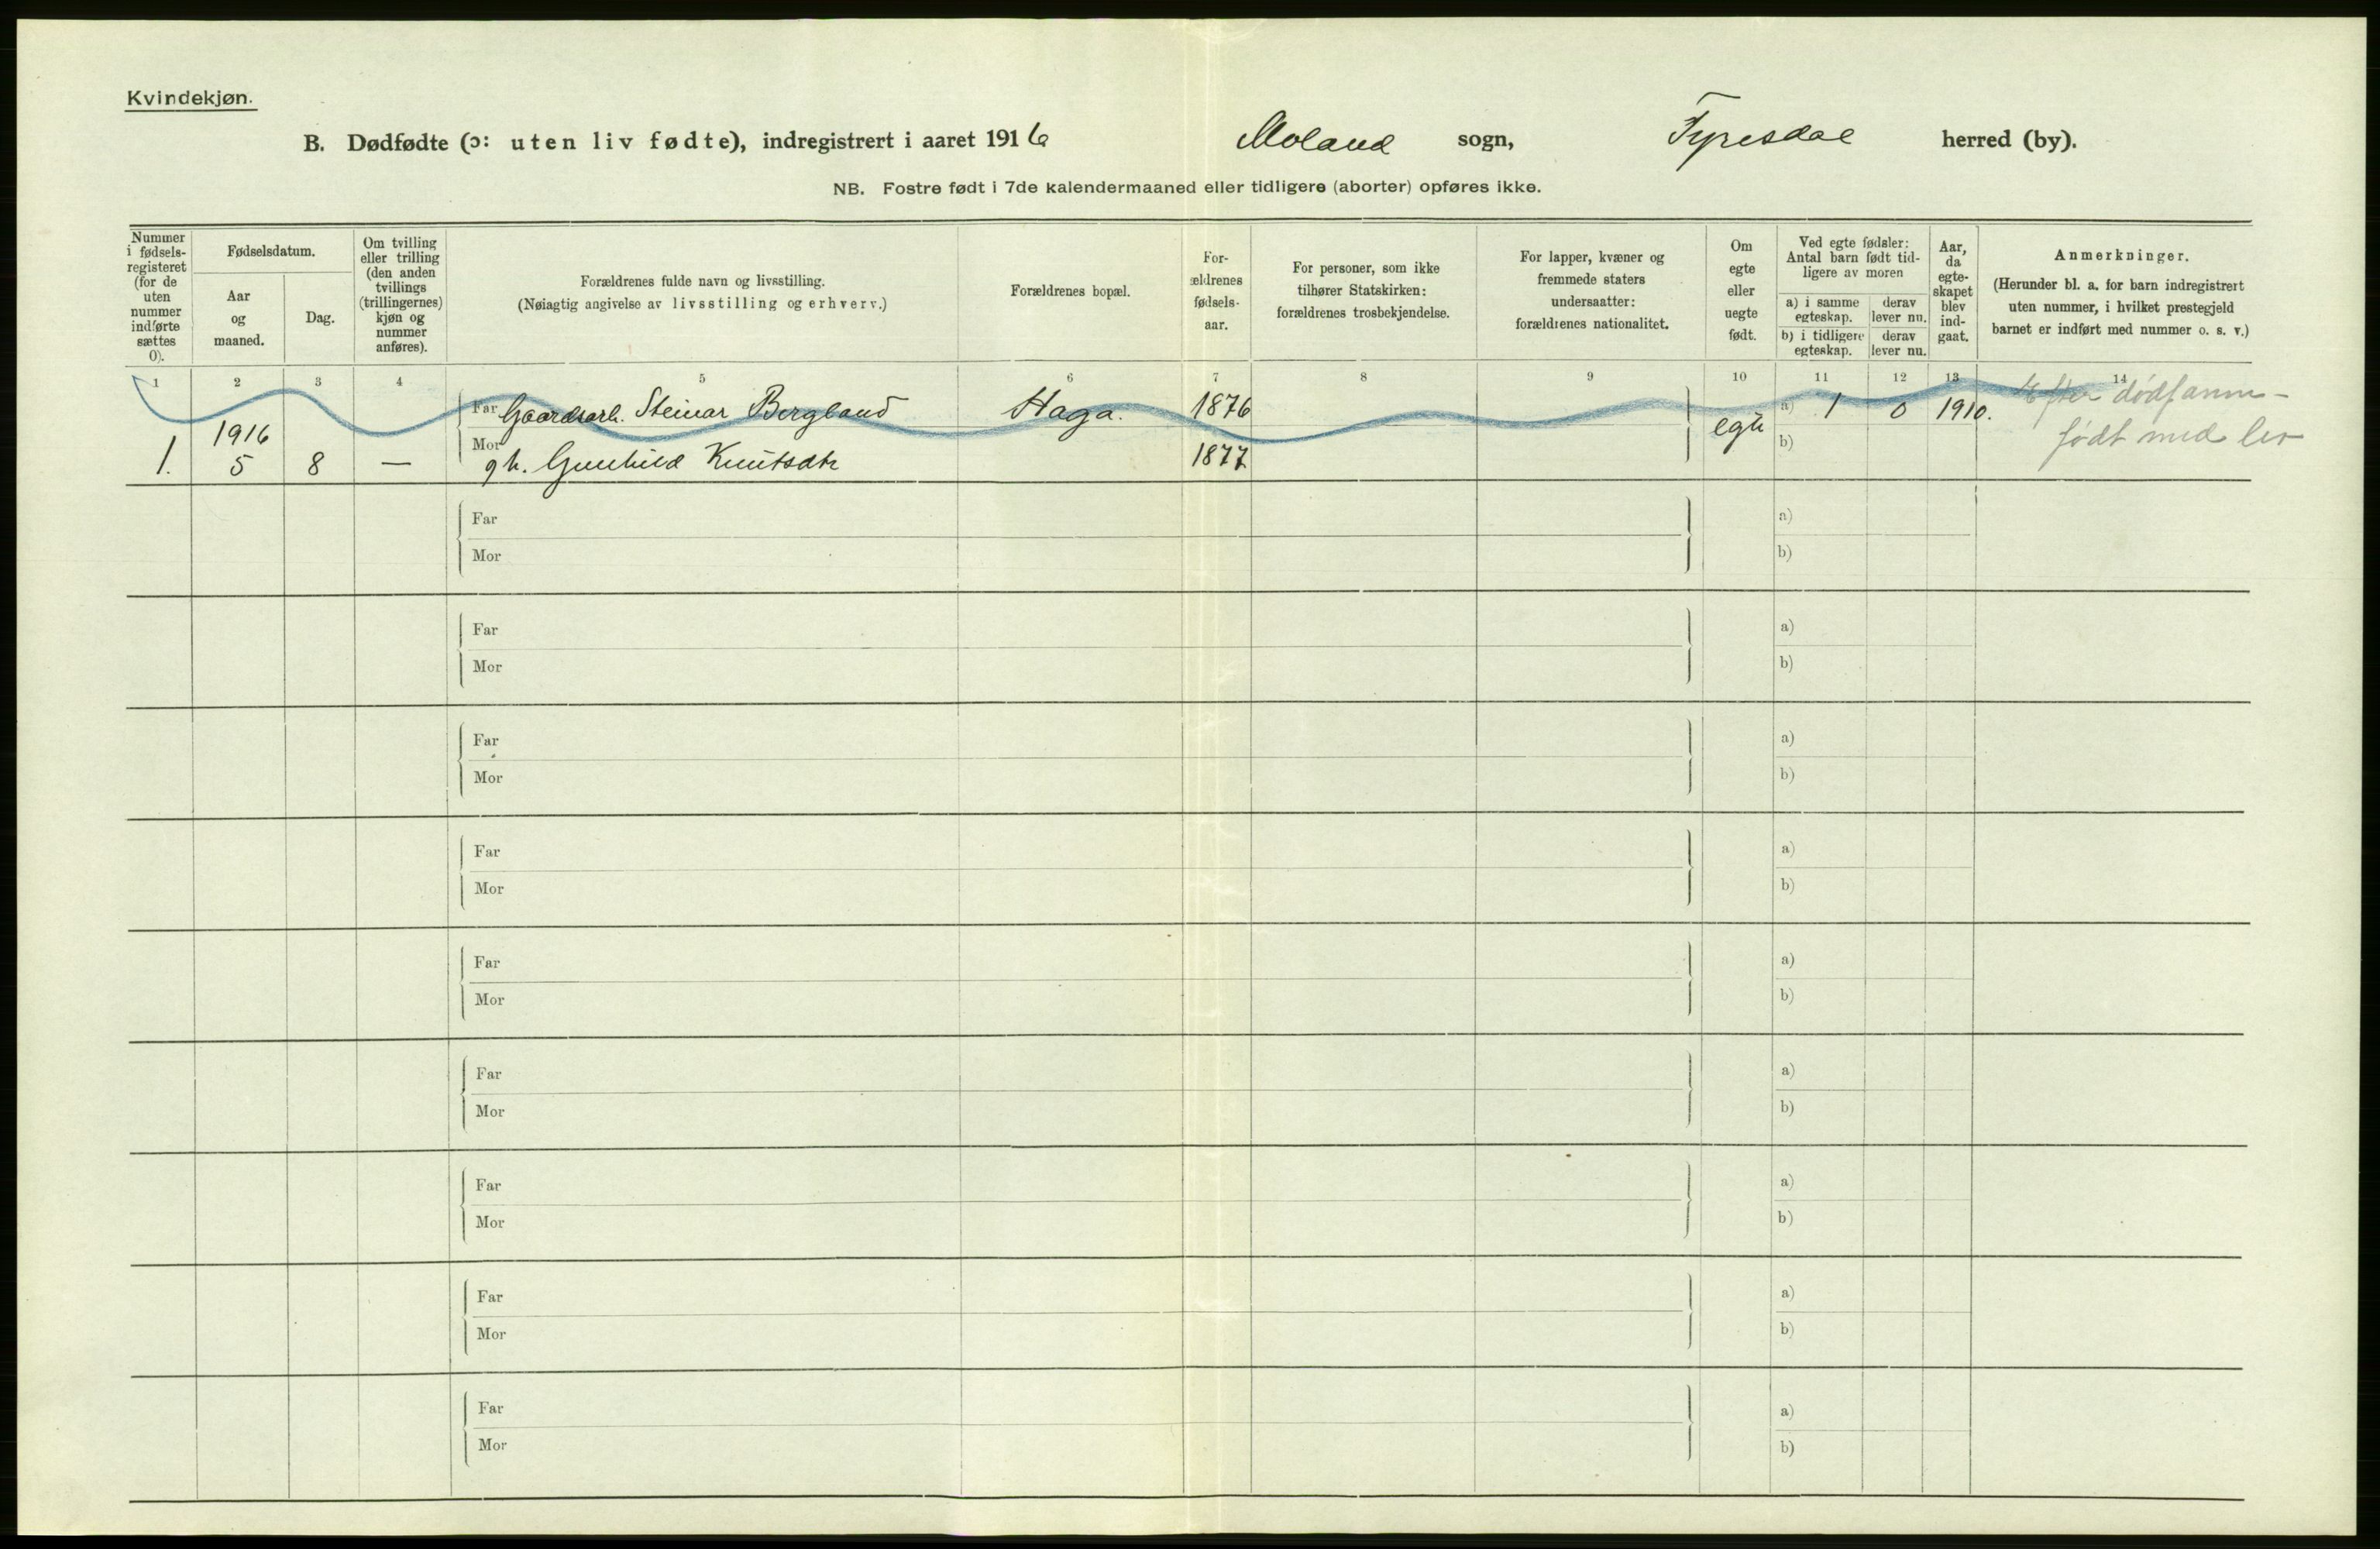 Kvindekjøn.
B. Dødfødte (ɔ: uten liv fødte), indregistrert i aaret 1916 Moland sogn, Fyresdal herred (by).
NB. Fostre født i 7de kalendermaaned eller tidligere (aborter) opføres ikke.
Nummer
i fødsels-
registeret
(for de
uten
nummer
indførte
sættes
0).
Fødselsdatum.
Aar
og
maaned.
Dag.
Om tvilling
eller trilling
(den anden
tvillings
(trillingernes)
kjøn og
nummer
anføres).
Forældrenes fulde navn og livsstilling.
(Nøiagtig angivelse av livsstilling og erhverv.)
Forældrenes bopæl.
For-
ældrenes
fødsels-
aar.
For personer, som ikke
tilhører Statskirken:
forældrenes trosbekjendelse.
For lapper, kvæner og
fremmede staters
undersaatter:
forældrenes nationalitet.
Om
egte
eller
uegte
født.
Ved egte fødsler:
Antal barn født tid-
ligere av moren
a) i samme
egteskap.
derav
lever nu.
b) i tidligere
egteskap.
derav
lever nu.
Aar,
da
egte-
skapet
blev
ind-
gaat.
Anmerkninger.
(Herunder bl. a. for barn indregistrert
uten nummer, i hvilket prestegjeld
barnet er indført med nummer o. s. v.)
1 2 3 4 5 6 7 8 9 10 11 12 13 14
Far Gaardsarb. Steinar Bergland Haga. 1876 egte a) 1 0 1910. Efter dødsanm-
1916
Mor gh. Gunhild Knutsdtr 1877 b) født med liv
1. 5 8 —
Far a)
Mor b)
Far a)
Mor b)
Far a)
Mor b)
Far a)
Mor b)
Far a)
Mor b)
Far a)
Mor b)
Far a)
Mor b)
Far a)
Mor b)
Far a)
Mor b)